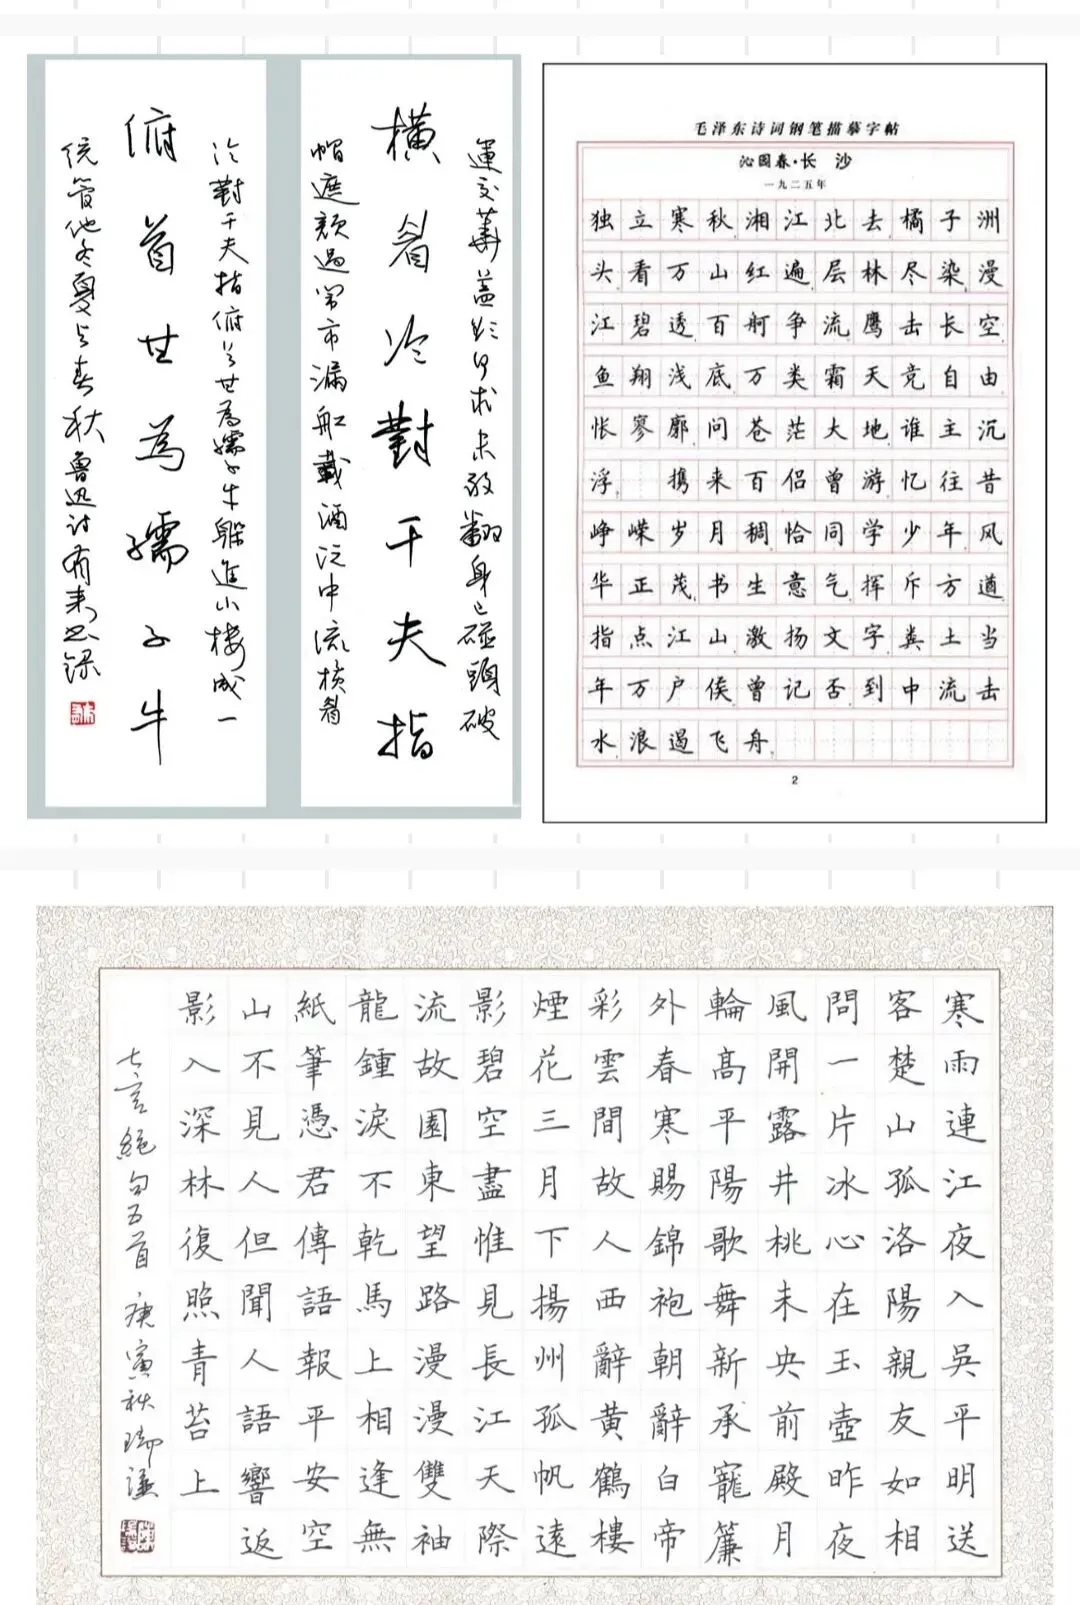 運交華蓋欲何求未敢翻身已碰頭破
橫眉冷對千夫指
帽遮顏過鬧市漏船載酒泛中流橫眉
冷對千夫指俯首甘為孺子牛躲進小樓成一
俯首甘為孺子牛
統管他冬夏与春秋魯迅诗有来书録
毛泽东诗词钢笔描摹字帖
沁园春·长 沙
一九二五年
独立寒秋湘江北去橘子洲
头看万山红遍层林尽染漫
江碧透百舸争流鹰击长空
鱼翔浅底万类霜天竞自由
怅寥廓问苍茫大地谁主沉
浮 携来百侣曾游忆往昔
峥嵘岁月稠恰同学少年风
华正茂书生意气挥斥方遒
指点江山激扬文字粪土当
年万户侯曾记否到中流击
水浪遏飞舟
2
寒雨連江夜入吳平明送
客楚山孤洛陽親友如相
問一片冰心在玉壺昨夜
風開露井桃未央前殿月
輪高平陽歌舞新承寵簾
外春寒賜錦袍朝辭白帝
彩雲間故人西辭黃鶴樓
煙花三月下揚州孤帆遠
影碧空盡惟見長江天際
流故園東望路漫漫雙袖
龍鍾淚不乾馬上相逢無
紙筆憑君傳語報平安空
山不見人但聞人語響返
影入深林復照青苔上
七言絕句五首 庚寅秋 謙